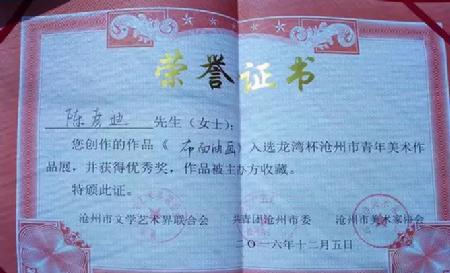 荣誉证书
陈彦 先生(女士):
您创作的作品《布面油画》入选龙湾杯沧州市青年美术作
品展,并获得优秀奖,作品被主办方收藏。
特颁此证。
沧州市文学艺术界联合会 共青团沧州市委 沧州市美术家协会
二〇一六年十二月五日